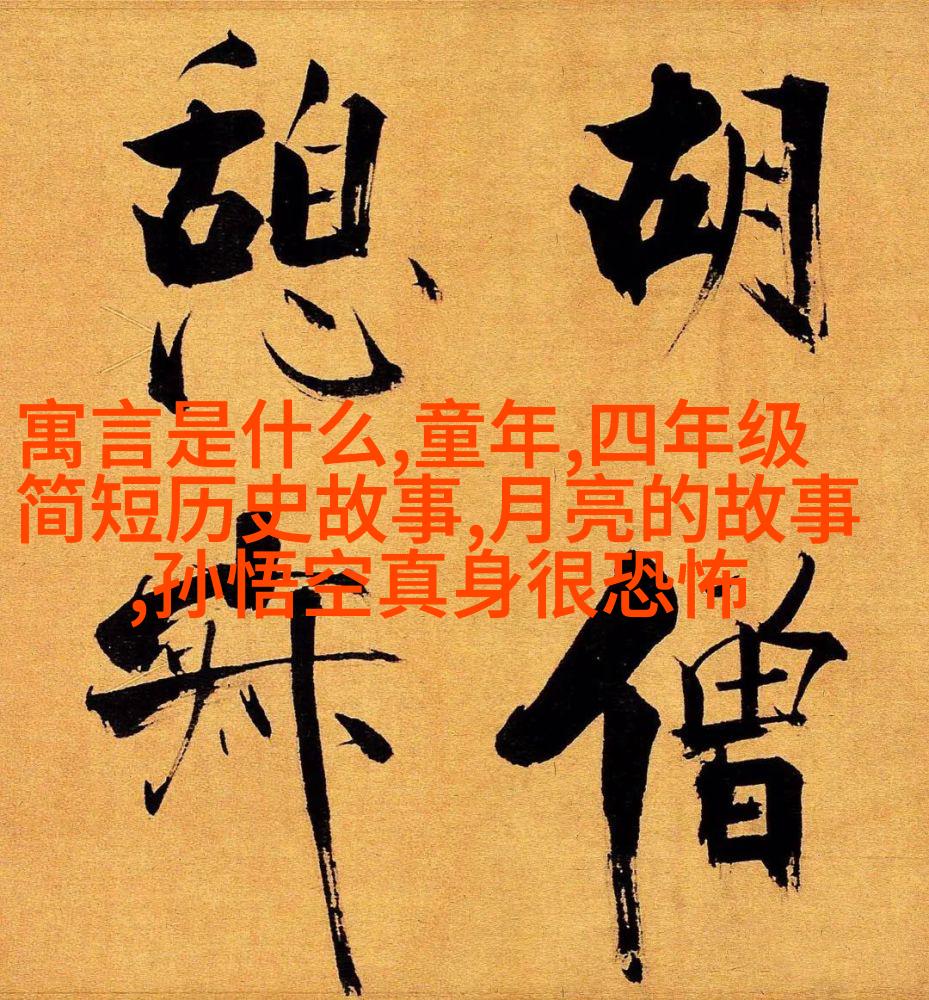 胡僧
憩
寓言是什么,童年,四年级
简短历史故事,月亮的故事
,孙悟空真身很恐怖